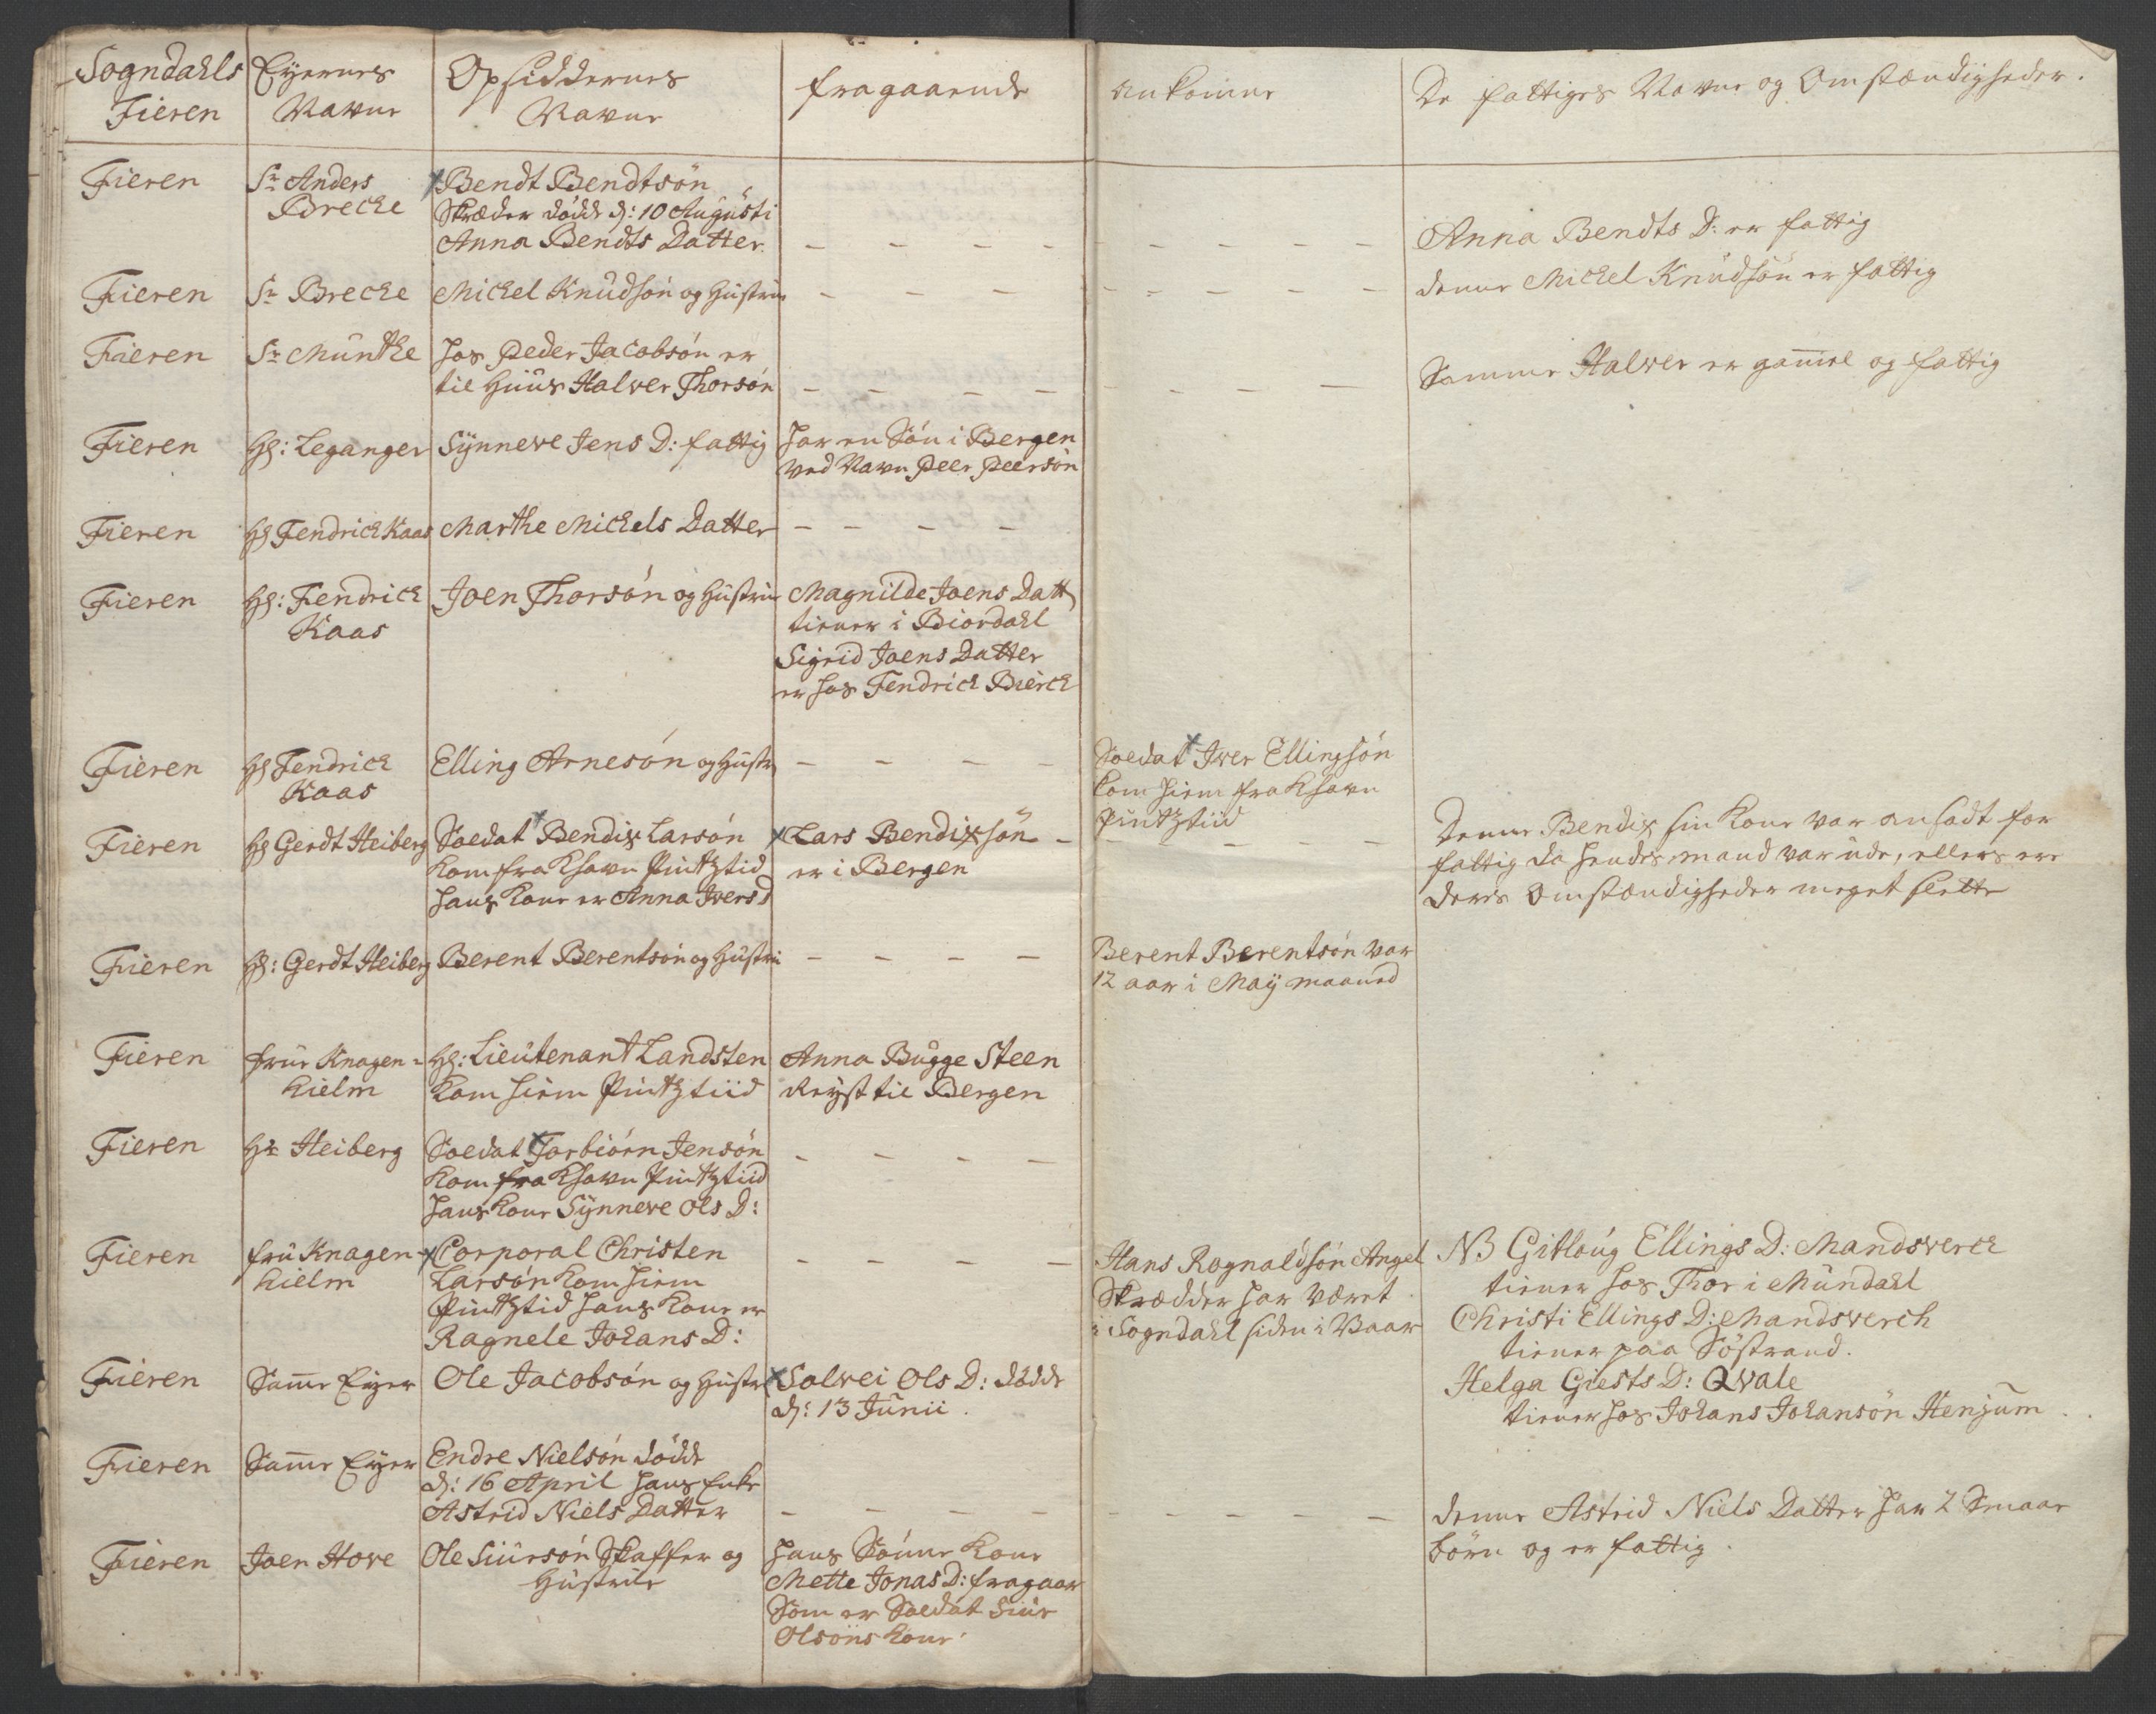 Sogndahls Fieren
Eyernes Navne
Opsiddernes Navne
fragaaende
ankomne
De fattiges Navne og Omstændigheder.
Fieren
Sr Anders
Brecke
Bendt Bendtsøn
Skræder døde d: 10 Augusti
Anna Bendts Datter.
Anna Bendts D: er fattig
Fieren
Sr Brecke
Mickel Knudsøn og Hustrue
denne Mickel Knudsøn er fattig
Fieren
Sr Munthe
hos Peder Jacobsøn er
til Huus Halver Thorsøn
Samme Halver er gam̅el og fattig
Fieren
Hr: Leganger
Synneve Jens D: fattig
har en Søn i Bergen
ved Navn Peer Peersøn
Fieren
Hr Fendrick Kaas
Marthe Mickels Datter
Fieren
Hr: Fendrick
Kaas
Joen Thorsøn og Hustrue
Magnilde Joens Datt
tiener i Biordahl
Sigrid Joens Datter
er hos Fendrick Bierck
Fieren
Hr Fendrick
Kaas
Elling Arnesøn og Hustr
Soldat Iver Ellingsøn
kom hiem fra Khavn
Pintztiid
Fieren
Hr Gerdt Heiberg
Soldat Bendix Larsøn
kom fra Khavn Pintztid
hans kone er Anna Ivers D
Lars Bendixsøn
er i Bergen
Denne Bendix sin kone var ansadt for
fattig da hendes mand var ude, ellers ere
deris Omstændigheder meget slette
Fieren
Hr: Gerdt Heiberg
Berent Berentsøn og Hustru
Berent Berentsøn var
12 aar i Maij maaned
Fieren
frue Knagen=
hielm
Hr: Lieutenant Landsten
kom hiem Pintztiid
Anna Bugge Steen
Reyst til Bergen
Fieren
Hr Heiberg
Soldat Torbiørn Jensøn
kom fra Khavn Pintztiid
hans kone Synneve Ols D:
Fieren
fru Knagen-
hielm
Corporal Christen
Larsøn kom hiem
Pintztid hans kone er
Ragnele Johans D:
Hans Rognaldsøn Angel
Skrædder har været
i Sogndahl siden i Vaar
NB Gitloug Ellings D: Mandsverck
tiener hos Thor i Mundahl
Christi Ellings D: Mandsverch
tiener paa Søstrand.
Helga Giests D: Qvale
tiener hos Johans Johansøn Henjum
Fieren
Sam̅e Eyer
Ole Jacobsøn og Hustr
Solvei Ols D: døde
d: 13 Junii.
Fieren
Sam̅e Eyer
Endre Nielsøn døde
d: 16 April hans Enke
Astrid Niels Datter
denne Astrid Niels Datter har 2 Smaae
børn og er fattig.
Fieren
Joen Hove
Ole Siursøn Skaffer og
Hustrue
hans Sønne kone
Mette Jonas D: fragaar
Som er Soldat Siur
Olsøns kone.